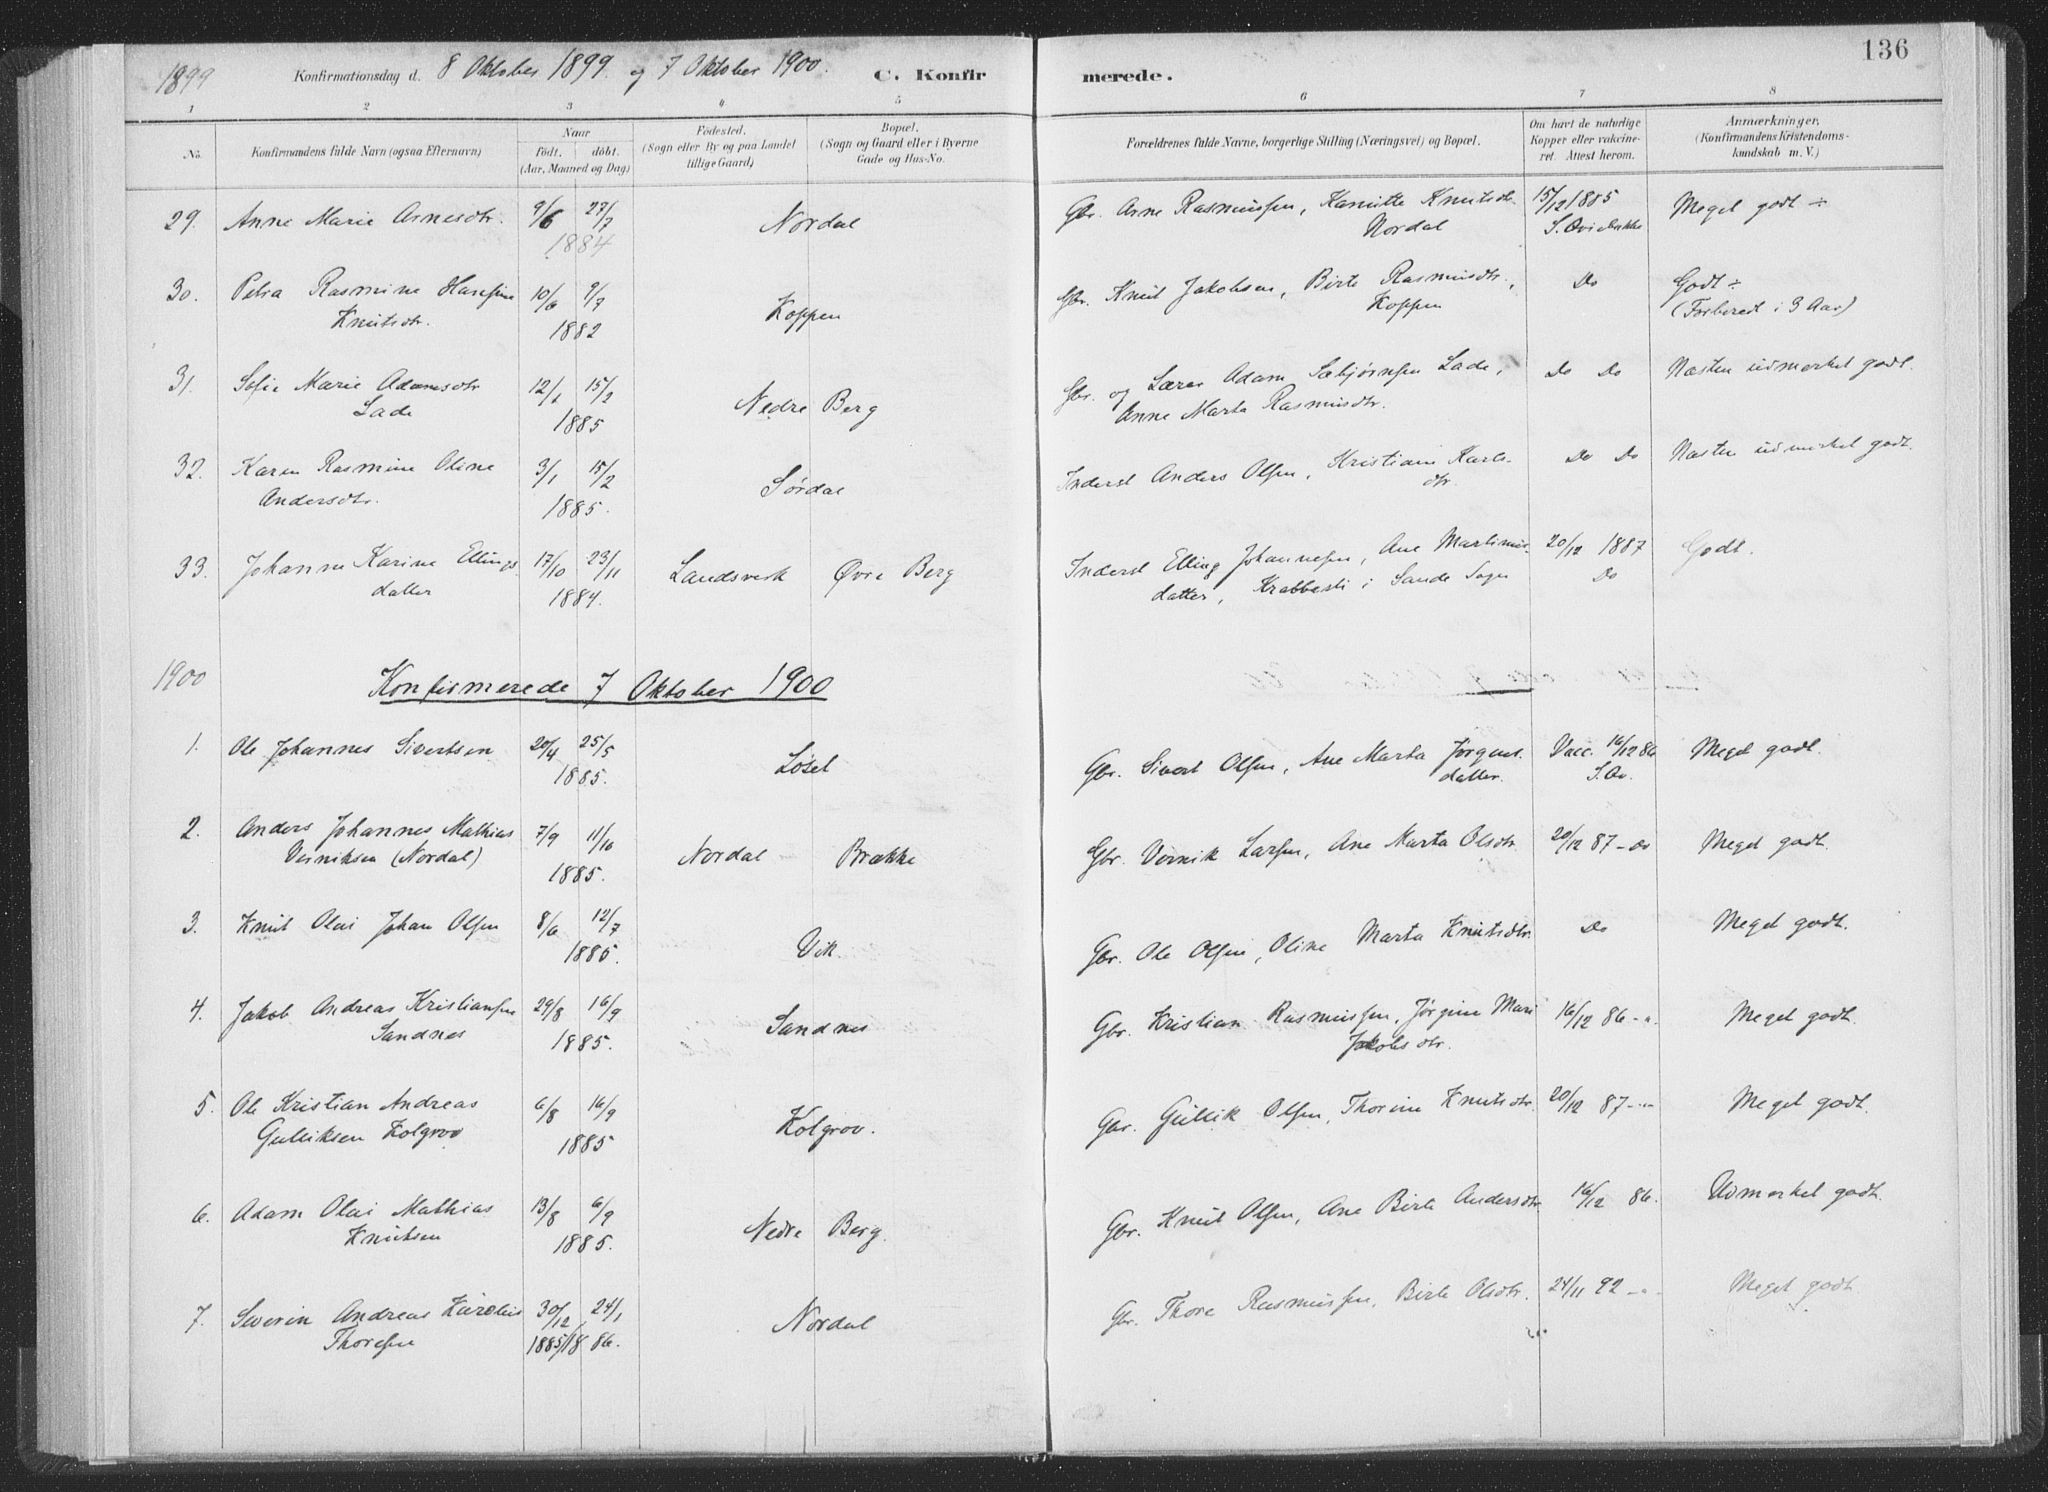 136
1899 Konfirmationsdag d. 8 Oktober 1899. og 7 Oktober 1900. C. Konfirmerede.
1 2 3 4 5 6 7 8
No. Konfirmandens fulde Navn (ogsaa Efternavn) Naar født. døbt. (Aar, Maaned og Dag) Fødested. (Sogn eller By og paa Landet tillige Gaard) Bopæl. (Sogn og Gaard eller i Byerne Gade og Hus-No. Forældrenes fulde Navne, borgerlige Stilling (Næringsvei) og Bopæl. Om havt de naturlige Kopper eller vakcineret. Attest herom. Anmærkninger. (Konfirmandens Kristendomskundskab m. V.)
29. Anne Marie Arnesdtr. 9/6 27/7 Nordal Gbr. Arne Rasmussen, Knutsdtr. 15/12 1885 Meget godt ÷
1884 Nordal
30. Petra Rasmine Hansine 10/6 9/7 Koppen Gbr. Knut Jakobsen, Birte Rasmusdtr., Do Godt ÷
Knutsdtr. 1882 Koppen (Forberedt i 3 Aar)
31. Sofie Marie Adamsdtr 12/1 15/2 Nedre Berg Gbr. og Lærer Adam Sæbjørnsen Lade, Do Do Næsten udmerket godt.
Lade 1885 Anne Marta Rasmusdtr.
32. Karen Rasmine Oline 3/1 15/2 Sørdal Inderst Anders Olsen, Kristiane Karls- Do Do Næsten udmerket godt.
Andersdtr. 1885. dtr.
33. Johanne Karine Ellings 17/10 23/11 Landsverk Øvre Berg Inderst Elling Johannesen, Ane Martinus- 20/12 1887 Godt.
datter 1884. datter, Krabbesti i Sande Sogn Do
1900 Konfirmerede 7 Oktober 1900
1. Ole Johannes Sivertsen 20/4 25/5 Løset Gbr. Sivert Olsen, Ane Marta Jørgens. Vacc. 16/12 86 Meget godt.
1885. datter. S.Qv.
2. Anders Johannes Mathias 7/9 11/10 Nordal Brække Gbr. Vernik Larsen, Ane Marta Olsdtr. 20/12 87 - do Meget godt.
Verniksen (Nordal) 1885.
3. Knut Olai Johan Olsen 8/6 12/7 Vik. Gbr. Ole Olsen, Oline Marta Knutsdtr. Do Meget godt.
1885.
4. Jakob Andreas Kristiansen 29/8 16/9 Sandnes Gbr. Kristian Rasmussen, Jørgine Mari 16/12 86 - " Meget godt.
Sandnes 1885. Jakobsdtr.
5. Ole Kristian Andreas 6/8 16/9 Kolgrov. Gbr. Gullik Olsen, Thorine Knutsdtr. 20/12 87 - " Meget godt.
Gulliksen Kolgrov 1885
6. Adam Olai Mathias 13/8 6/9 Nedre Berg. Gbr. Knut Olsen, Ane Birte Andersdtr. 16/12 86. Udmerket godt.
Knutsen 1885.
7. Severin Andreas Karolus 30/12 24/1 Nordal Gbr. Thore Rasmussen, Birte Olsdtr. 24/11 92 - " Meget godt
Thoresen 1885/18 86.